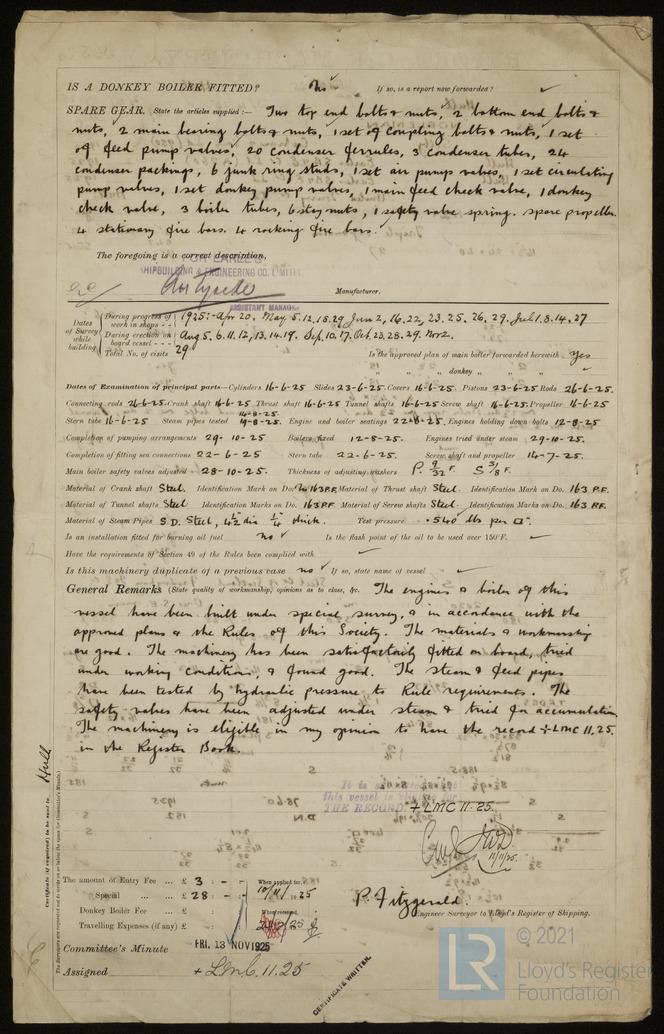 IS A DONKEY BOILER FITTED? No ✓ If so, is a report now forwarded? ✓
SPARE GEAR. State the articles supplied:— Two top end bolts & nuts, 2 bottom end bolts &
nuts, 2 main bearing bolts & nuts, 1 set of coupling bolts & nuts, 1 set
of feed pump valves, 20 condenser ferrules, 3 condenser tubes, 24
condenser packings, 6 junk ring studs, 1 set air pump valves, 1 set circulating
pump valves, 1 set donkey pump valves, 1 main feed check valve, 1 donkey
check valve, 3 boiler tubes, 6 stay nuts, 1 safety valve spring. spare propeller.
4 stationary fire bars. 4 rocking fire bars.
The foregoing is a correct description,
EARLE'S
SHIPBUILDING & ENGINEERING CO. LIMITED
Manufacturer.
ASSISTANT MANAGER
Dates of Survey while building
During progress of work in shops - - 1925:- Apr 20. May 5. 12. 18. 29 Jun 2, 16. 22, 23. 25. 26. 29. Jul 1. 3. 14. 27
During erection on board vessel - - - Aug 5. 6. 11. 12, 13. 14. 19. Sep. 10. 17. Oct. 23. 28. 29. Nov 2.
Total No. of visits 29
Is the approved plan of main boiler forwarded herewith Yes
" " " donkey " " "
Dates of Examination of principal parts—Cylinders 16-6-25. Slides 23-6-25. Covers 16-6-25. Pistons 23-6-25 Rods 26-6-25.
Connecting rods 26-6-25. Crank shaft 16-6-25 Thrust shaft 16-6-25 Tunnel shafts 16-6-25 Screw shaft 16-6-25. Propeller 16-6-25
Stern tube 16-6-25 Steam pipes tested 14-8-25. 19-8-25. Engine and boiler seatings 22-6-25. Engines holding down bolts 12-8-25
Completion of pumping arrangements 29-10-25 Boilers fixed 12-8-25. Engines tried under steam 29-10-25.
Completion of fitting sea connections 22-6-25 Stern tube 22-6-25. Screw shaft and propeller 14-7-25.
Main boiler safety valves adjusted 28-10-25. Thickness of adjusting washers P. 9/32 F. S 3/8 F.
Material of Crank shaft Steel. Identification Mark on Do. No 163 P.F. Material of Thrust shaft Steel. Identification Mark on Do. 163 P.F.
Material of Tunnel shafts Steel Identification Marks on Do. 163 P.F. Material of Screw shafts Steel. Identification Marks on Do. 163 P.F.
Material of Steam Pipes S.D. Steel, 4½ dia ¼ thick. Test pressure 540 lbs per □".
Is an installation fitted for burning oil fuel no ✓ Is the flash point of the oil to be used over 150°F. ✓
Have the requirements of Section 49 of the Rules been complied with ✓
Is this machinery duplicate of a previous case no ✓ If so, state name of vessel ✓
General Remarks (State quality of workmanship, opinions as to class, &c. The engines & boiler of this
vessel have been built under special survey, & in accordance with the
approved plans & the Rules of this Society. The materials & workmanship
are good. The machinery has been satisfactorily fitted on board, tried
under working conditions, & found good. The steam & feed pipes
have been tested by hydraulic pressure to Rule requirements. The
safety valves have been adjusted under steam & tried for accumulation
The machinery is eligible in my opinion to have the record +LMC 11.25.
in the Register Book.
It is
this vessel is
THE RECORD + LMC 11.25.
11/11/25.
Certificate (if required) to be sent to Hull
The amount of Entry Fee ... £ 3 : - : - When applied for,
Special ... £ 28 : - : - 10/11/1925
Donkey Boiler Fee ... £ : : When received,
Travelling Expenses (if any) £ : :
P. Fitzgerald.
Engineer Surveyor to Lloyd's Register of Shipping.
Committee's Minute FRI. 13 NOV 1925
Assigned + L.M.C. 11.25
CERTIFICATE WRITTEN.
LR
© 2021
Lloyd's Register
Foundation